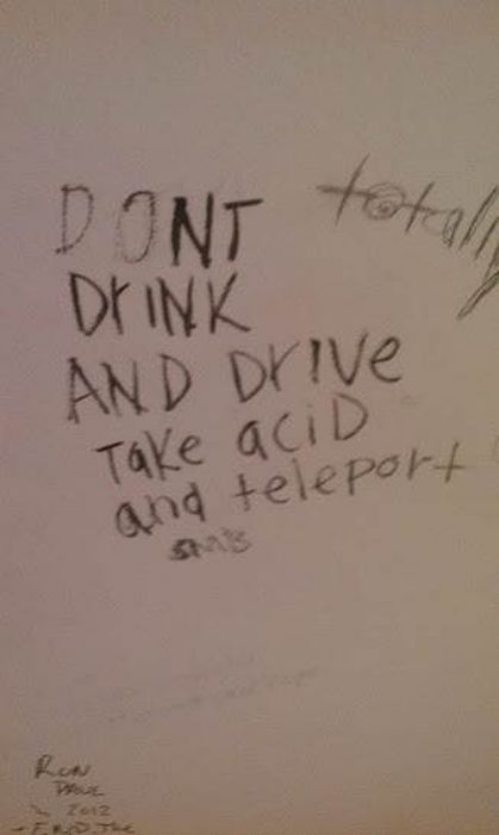 DONT
totally
DrINK
AND DrIve
Take aciD
and teleport
RON
PAUL
2012
- END THE